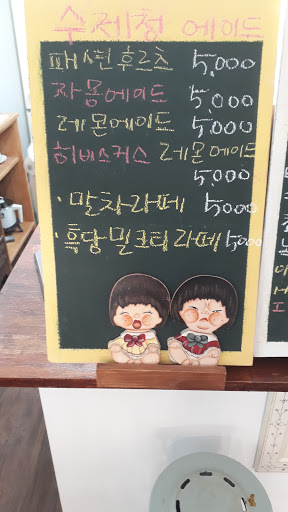 수제청 에이드
패션후르츠 5,000
자몽에이드 5,000
레몬에이드 5,000
히비스커스 레몬에이드
5,000
·말차라떼 5,000
·흑당밀크티라떼 5,000